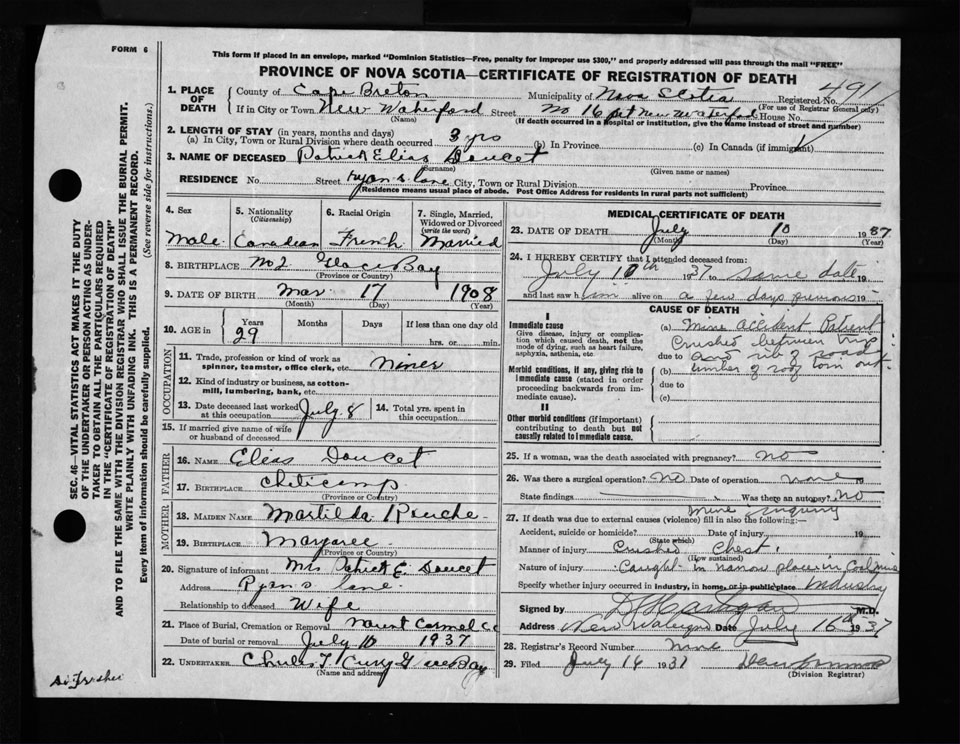 FORM 6
This form if placed in an envelope, marked "Dominion Statistics—Free, penalty for improper use $300," and properly addressed will pass through the mail "FREE"
PROVINCE OF NOVA SCOTIA—CERTIFICATE OF REGISTRATION OF DEATH
1. PLACE OF DEATH
County of Cape Breton Municipality of Nova Scotia Registered No. 491
(For use of Registrar General only)
If in City or Town New Waterford Street No 16 pit New Waterford House No.
(Name) (If death occurred in a hospital or institution, give the name instead of street and number)
2. LENGTH OF STAY (in years, months and days)
(a) In City, Town or Rural Division where death occurred 3 yrs (b) In Province (c) In Canada (if immigrant)
3. NAME OF DECEASED Patrick Elias Doucet
(Surname) (Given name or names)
RESIDENCE No. Street Ryan's Lane City, Town or Rural Division Province
(Residence means usual place of abode. Post Office Address for residents in rural parts not sufficient)
4. Sex Male
5. Nationality (Citizenship) Canadian
6. Racial Origin French
7. Single, Married, Widowed or Divorced (write the word) Married
8. BIRTHPLACE No 2 Glace Bay
(Province or Country)
9. DATE OF BIRTH Mar 17 1908
(Month) (Day) (Year)
10. AGE in Years Months Days If less than one day old
29 hrs. or min.
OCCUPATION
11. Trade, profession or kind of work as spinner, teamster, office clerk, etc. Miner
12. Kind of industry or business, as cotton-mill, lumbering, bank, etc.
13. Date deceased last worked at this occupation July 8
14. Total yrs. spent in this occupation
15. If married give name of wife or husband of deceased
FATHER
16. NAME Elias Doucet
17. BIRTHPLACE Cheticamp
(Province or Country)
MOTHER
18. MAIDEN NAME Martilda
19. BIRTHPLACE Margaree
(Province or Country)
20. Signature of informant Mrs Patrick E. Doucet
Address Ryan's Lane
Relationship to deceased Wife
21. Place of Burial, Cremation or Removal Mount Carmel
Date of burial or removal July 10 1937
22. UNDERTAKER Charles T Curry Glace Bay
(Name and address)
MEDICAL CERTIFICATE OF DEATH
23. DATE OF DEATH July 10 1937
(Month) (Day) (Year)
24. I HEREBY CERTIFY that I attended deceased from:
July 10th 1937 to same date 19
and last saw him alive on a few days previous 19
CAUSE OF DEATH
I
Immediate cause
Give disease, injury or complication which caused death, not the mode of dying, such as heart failure, asphyxia, asthenia, etc.
Morbid conditions, if any, giving rise to immediate cause (stated in order proceeding backwards from immediate cause).
II
Other morbid conditions (if important) contributing to death but not causally related to immediate cause.
(a) Mine accident Patient
crushed between trip
due to and rib of road
(b) timber of roof torn out.
due to
(c)
25. If a woman, was the death associated with pregnancy? no
26. Was there a surgical operation? No Date of operation none
State findings Was there an autopsy? No
mine inquiry
27. If death was due to external causes (violence) fill in also the following:—
Accident, suicide or homicide? Date of injury 19
(State which)
Manner of injury Crushed Chest.
(How sustained)
Nature of injury Caught in narrow place in Coal mine
Specify whether injury occurred in industry, in home, or in public place Industry
Signed by M.D.
Address New Waterford Date July 16th 1937
28. Registrar's Record Number nine
29. Filed July 16 1937
(Division Registrar)
SEC. 46—VITAL STATISTICS ACT MAKES IT THE DUTY
OF THE UNDERTAKER OR PERSON ACTING AS UNDER-
TAKER TO OBTAIN ALL THE PARTICULARS REQUIRED
IN THE "CERTIFICATE OF REGISTRATION OF DEATH"
AND TO FILE THE SAME WITH THE DIVISION REGISTRAR WHO SHALL ISSUE THE BURIAL PERMIT.
WRITE PLAINLY WITH UNFADING INK. THIS IS A PERMANENT RECORD.
Every item of information should be carefully supplied. (See reverse side for instructions.)